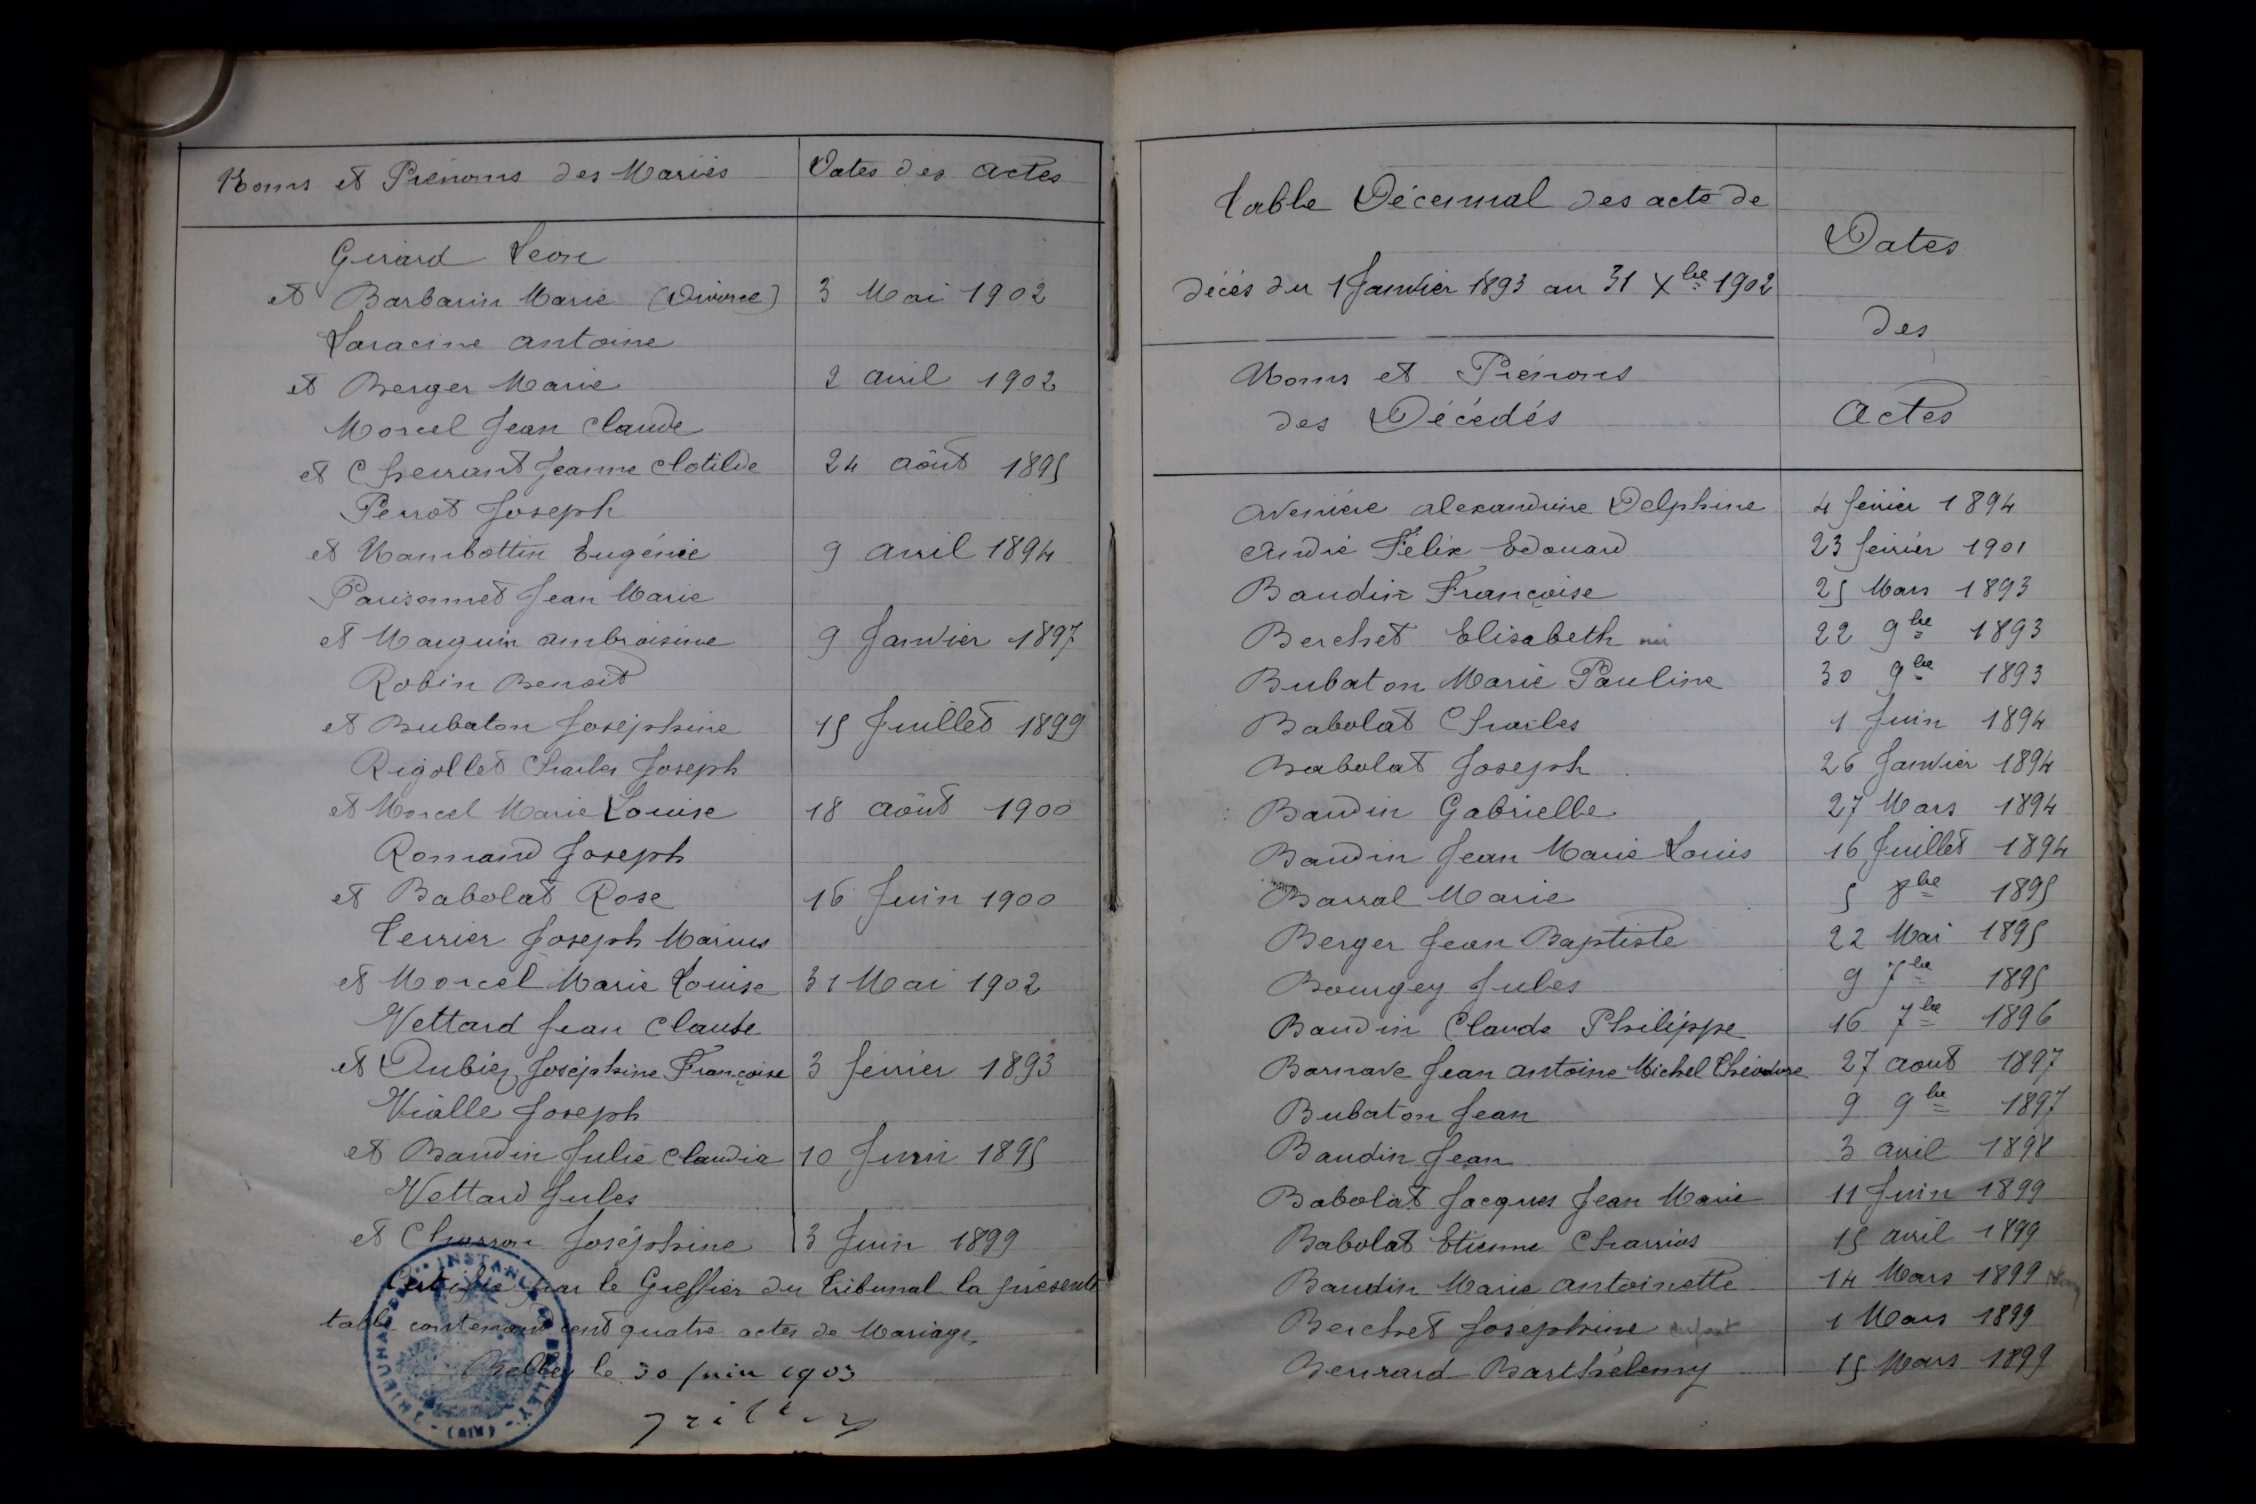 Noms et Prénoms des Mariés
Dates des actes
Girard Leon
et Barbarin Marie (Divorce) 3 Mai 1902
Saracine antoine
et Berger Marie 2 avril 1902
Morcel Jean Claude
et Cherrant Jeanne Clotilde 24 août 1895
Perrot Joseph
et Nambottin Eugénie 9 avril 1894
Parisonnet Jean Marie
et Marguin ambroisine 9 Janvier 1897
Robin Benoit
et Bubaton Joséphine 15 Juillet 1899
Rigollet Charles Joseph
et Morcel Marie Louise 18 août 1900
Romand Joseph
et Babolat Rose 16 Juin 1900
Terrier Joseph Marius
et Morcel Marie Louise 31 Mai 1902
Vettard Jean Claude
et Dubiez Joséphine Françoise 3 février 1893
Vialle Joseph
et Baudin Julie Claudia 10 Juin 1895
Vettard Jules
et Charron Joséphine 3 Juin 1899
Certifié par le Greffier du Tribunal la présente
table contenant cent quatre actes de Mariage,
Belley le 30 juin 1903
table Décennal des acts de
décés du 1 Janvier 1893 au 31 Xbre 1902
Noms et Prénoms
des Décédés
Dates
des
Actes
Avenière alexandrine Delphine 4 février 1894
André Félix Edouard 23 février 1901
Baudin Françoise 25 Mars 1893
Berchet Elisabeth 22 9bre 1893
Bubaton Marie Pauline 30 9bre 1893
Babolat Charles 1 Juin 1894
Babolat Joseph 26 Janvier 1894
Baudin Gabrielle 27 Mars 1894
Baudin Jean Marie Louis 16 Juillet 1894
Barral Marie 5 8bre 1895
Berger Jean Baptiste 22 Mai 1895
Bourgey Jules 9 7bre 1895
Baudin Claude Philippe 16 7bre 1896
Barnave Jean antoine Michel 27 aout 1897
Bubaton Jean 9 9bre 1897
Baudin Jean 3 avril 1898
Babolat Jacques Jean Marie 11 Juin 1899
Babolat Etienne Charrios 15 avril 1899
Baudin Marie antoinette 14 Mars 1899
Berchet Joséphine enfant 1 Mars 1899
Berrard Barthélemy 15 Mars 1899